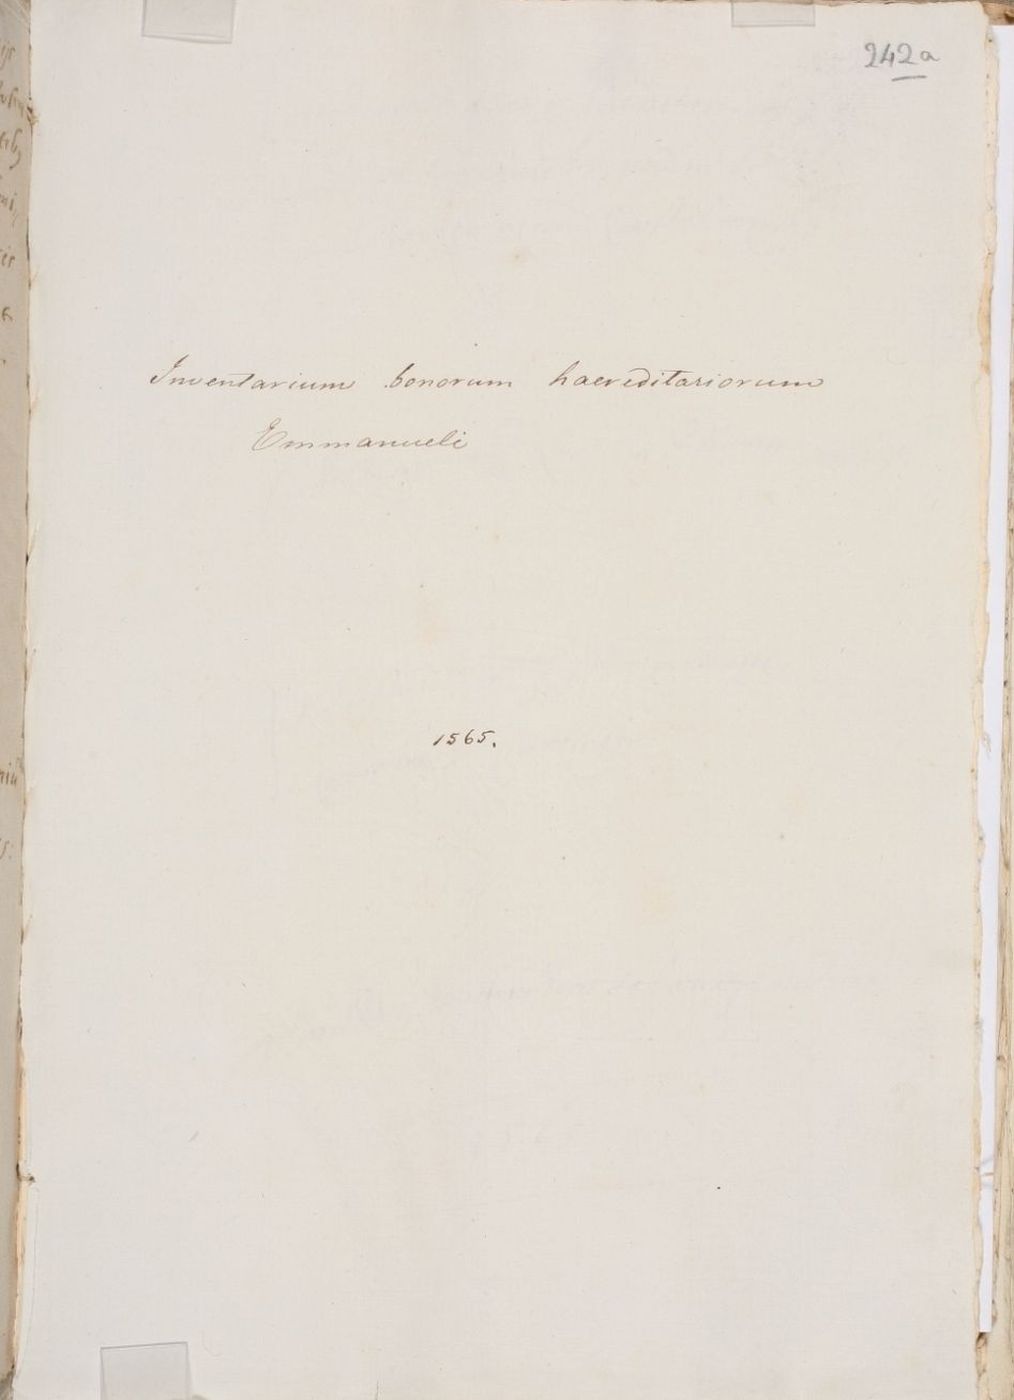 242a
Inventarium bonorum haereditariorum
Emmanueli
1565.